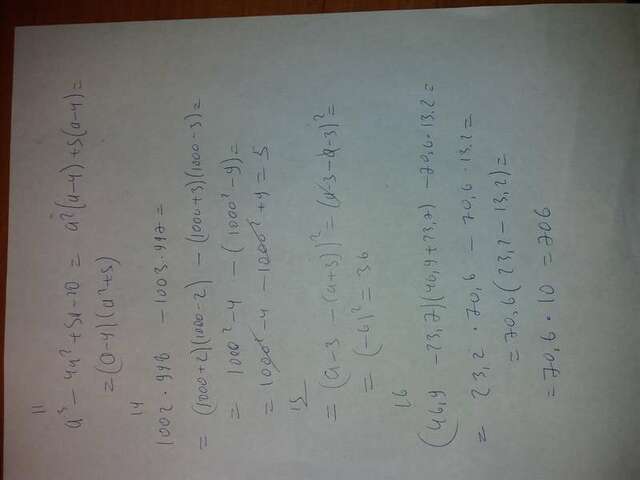 11
a³ - 4a² + 5a - 20 = a²(a-4) + 5(a-4) =
= (a-4)(a²+5)
14
1002 · 998 - 1003 · 997 =
= (1000+2)(1000-2) - (1000+3)(1000-3) =
= 1000² - 4 - (1000² - 9) =
= 1000² - 4 - 1000² + 9 = 5
15
= (a-3 - (a+3))² = (a-3-a-3)² =
= (-6)² = 36
16
(46,9 - 23,7)(46,9+23,7) - 70,6 · 13.2 =
= 23,2 · 70,6 - 70,6 · 13.2 =
= 70,6(23,2 - 13,2) =
= 70,6 · 10 = 706